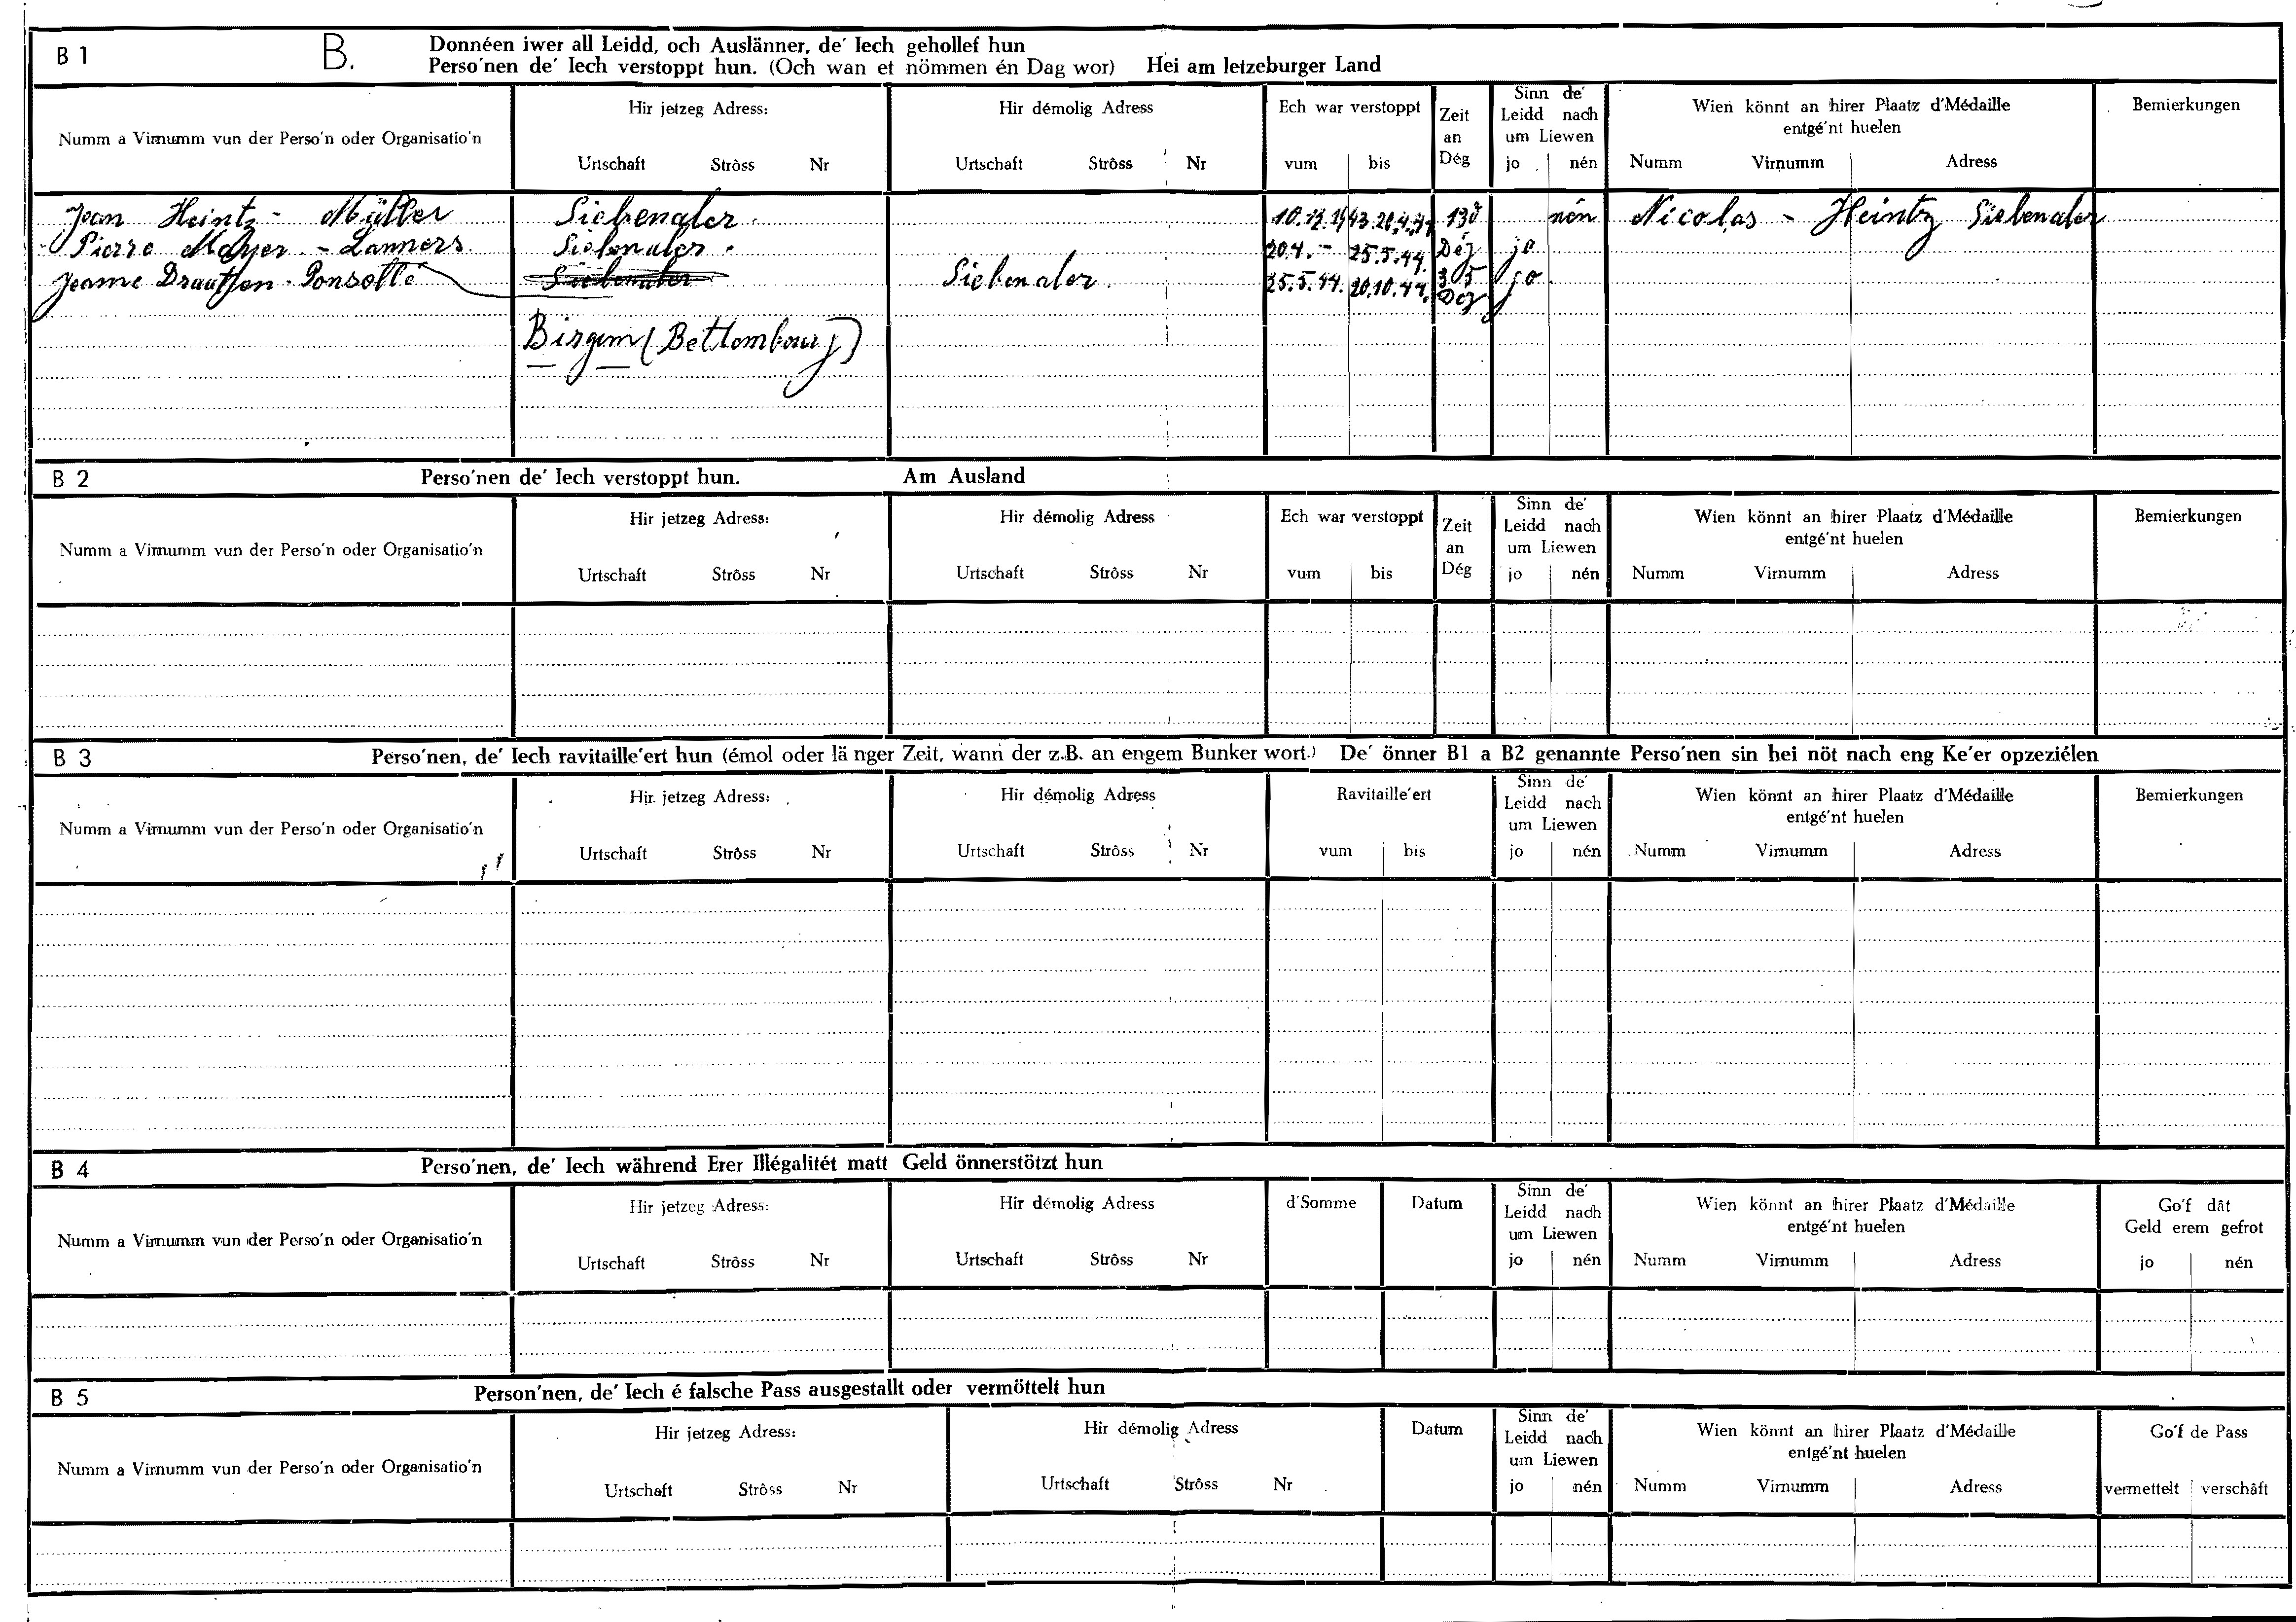 B 1 B. Donnéen iwer all Leidd, och Auslänner, de' Iech gehollef hun
Perso'nen de' Iech verstoppt hun. (Och wan et nömmen én Dag wor) Hei am letzeburger Land
Numm a Virnumm vun der Perso'n oder Organisatio'n
Hir jetzeg Adress:
Urtschaft Strôss Nr
Hir démolig Adress
Urtschaft Strôss Nr
Ech war verstoppt
vum bis
Zeit
an
Dég
Sinn de'
Leidd nach
um Liewen
jo nén
Wien könnt an hirer Plaatz d'Médaille
entgé'nt huelen
Numm Virnumm Adress
Bemierkungen
Jean Heintz - Müller Siebenaler. 10.12.1943. 20.4.44 nén Nicolas - Heintz Siebenaler
Pierre Mayer - Lanners Siebenaler. 20.4.- 25.5.44. Dég jo
Jeanne Siebenaler Siebenaler. 25.5.44. 20.10.44. jo
Dég
(Bettembourg)
B 2 Perso'nen de' Iech verstoppt hun. Am Ausland
Numm a Virnumm vun der Perso'n oder Organisatio'n
Hir jetzeg Adress:
Urtschaft Strôss Nr
Hir démolig Adress
Urtschaft Strôss Nr
Ech war verstoppt
vum bis
Zeit
an
Dég
Sinn de'
Leidd nach
um Liewen
jo nén
Wien könnt an hirer Plaatz d'Médaille
entgé'nt huelen
Numm Virnumm Adress
Bemierkungen
B 3 Perso'nen, de' Iech ravitaille'ert hun (émol oder länger Zeit, wann der z.B. an engem Bunker wort.) De' önner B1 a B2 genannte Perso'nen sin hei nöt nach eng Ke'er opzeziélen
Numm a Virnumm vun der Perso'n oder Organisatio'n
Hir jetzeg Adress:
Urtschaft Strôss Nr
Hir démolig Adress
Urtschaft Strôss Nr
Ravitaille'ert
vum bis
Sinn de'
Leidd nach
um Liewen
jo nén
Wien könnt an hirer Plaatz d'Médaille
entgé'nt huelen
Numm Virnumm Adress
Bemierkungen
B 4 Perso'nen, de' Iech während Erer Illégalitét matt Geld önnerstötzt hun
Numm a Virnumm vun der Perso'n oder Organisatio'n
Hir jetzeg Adress:
Urtschaft Strôss Nr
Hir démolig Adress
Urtschaft Strôss Nr
d'Somme
Datum
Sinn de'
Leidd nach
um Liewen
jo nén
Wien könnt an hirer Plaatz d'Médaille
entgé'nt huelen
Numm Virnumm Adress
Go'f dât
Geld erem gefrot
jo nén
B 5 Person'nen, de' Iech é falsche Pass ausgestallt oder vermöttelt hun
Numm a Virnumm vun der Perso'n oder Organisatio'n
Hir jetzeg Adress:
Urtschaft Strôss Nr
Hir démolig Adress
Urtschaft Strôss Nr
Datum
Sinn de'
Leidd nach
um Liewen
jo nén
Wien könnt an hirer Plaatz d'Médaille
entgé'nt huelen
Numm Virnumm Adress
Go'f de Pass
vermettelt verschâft